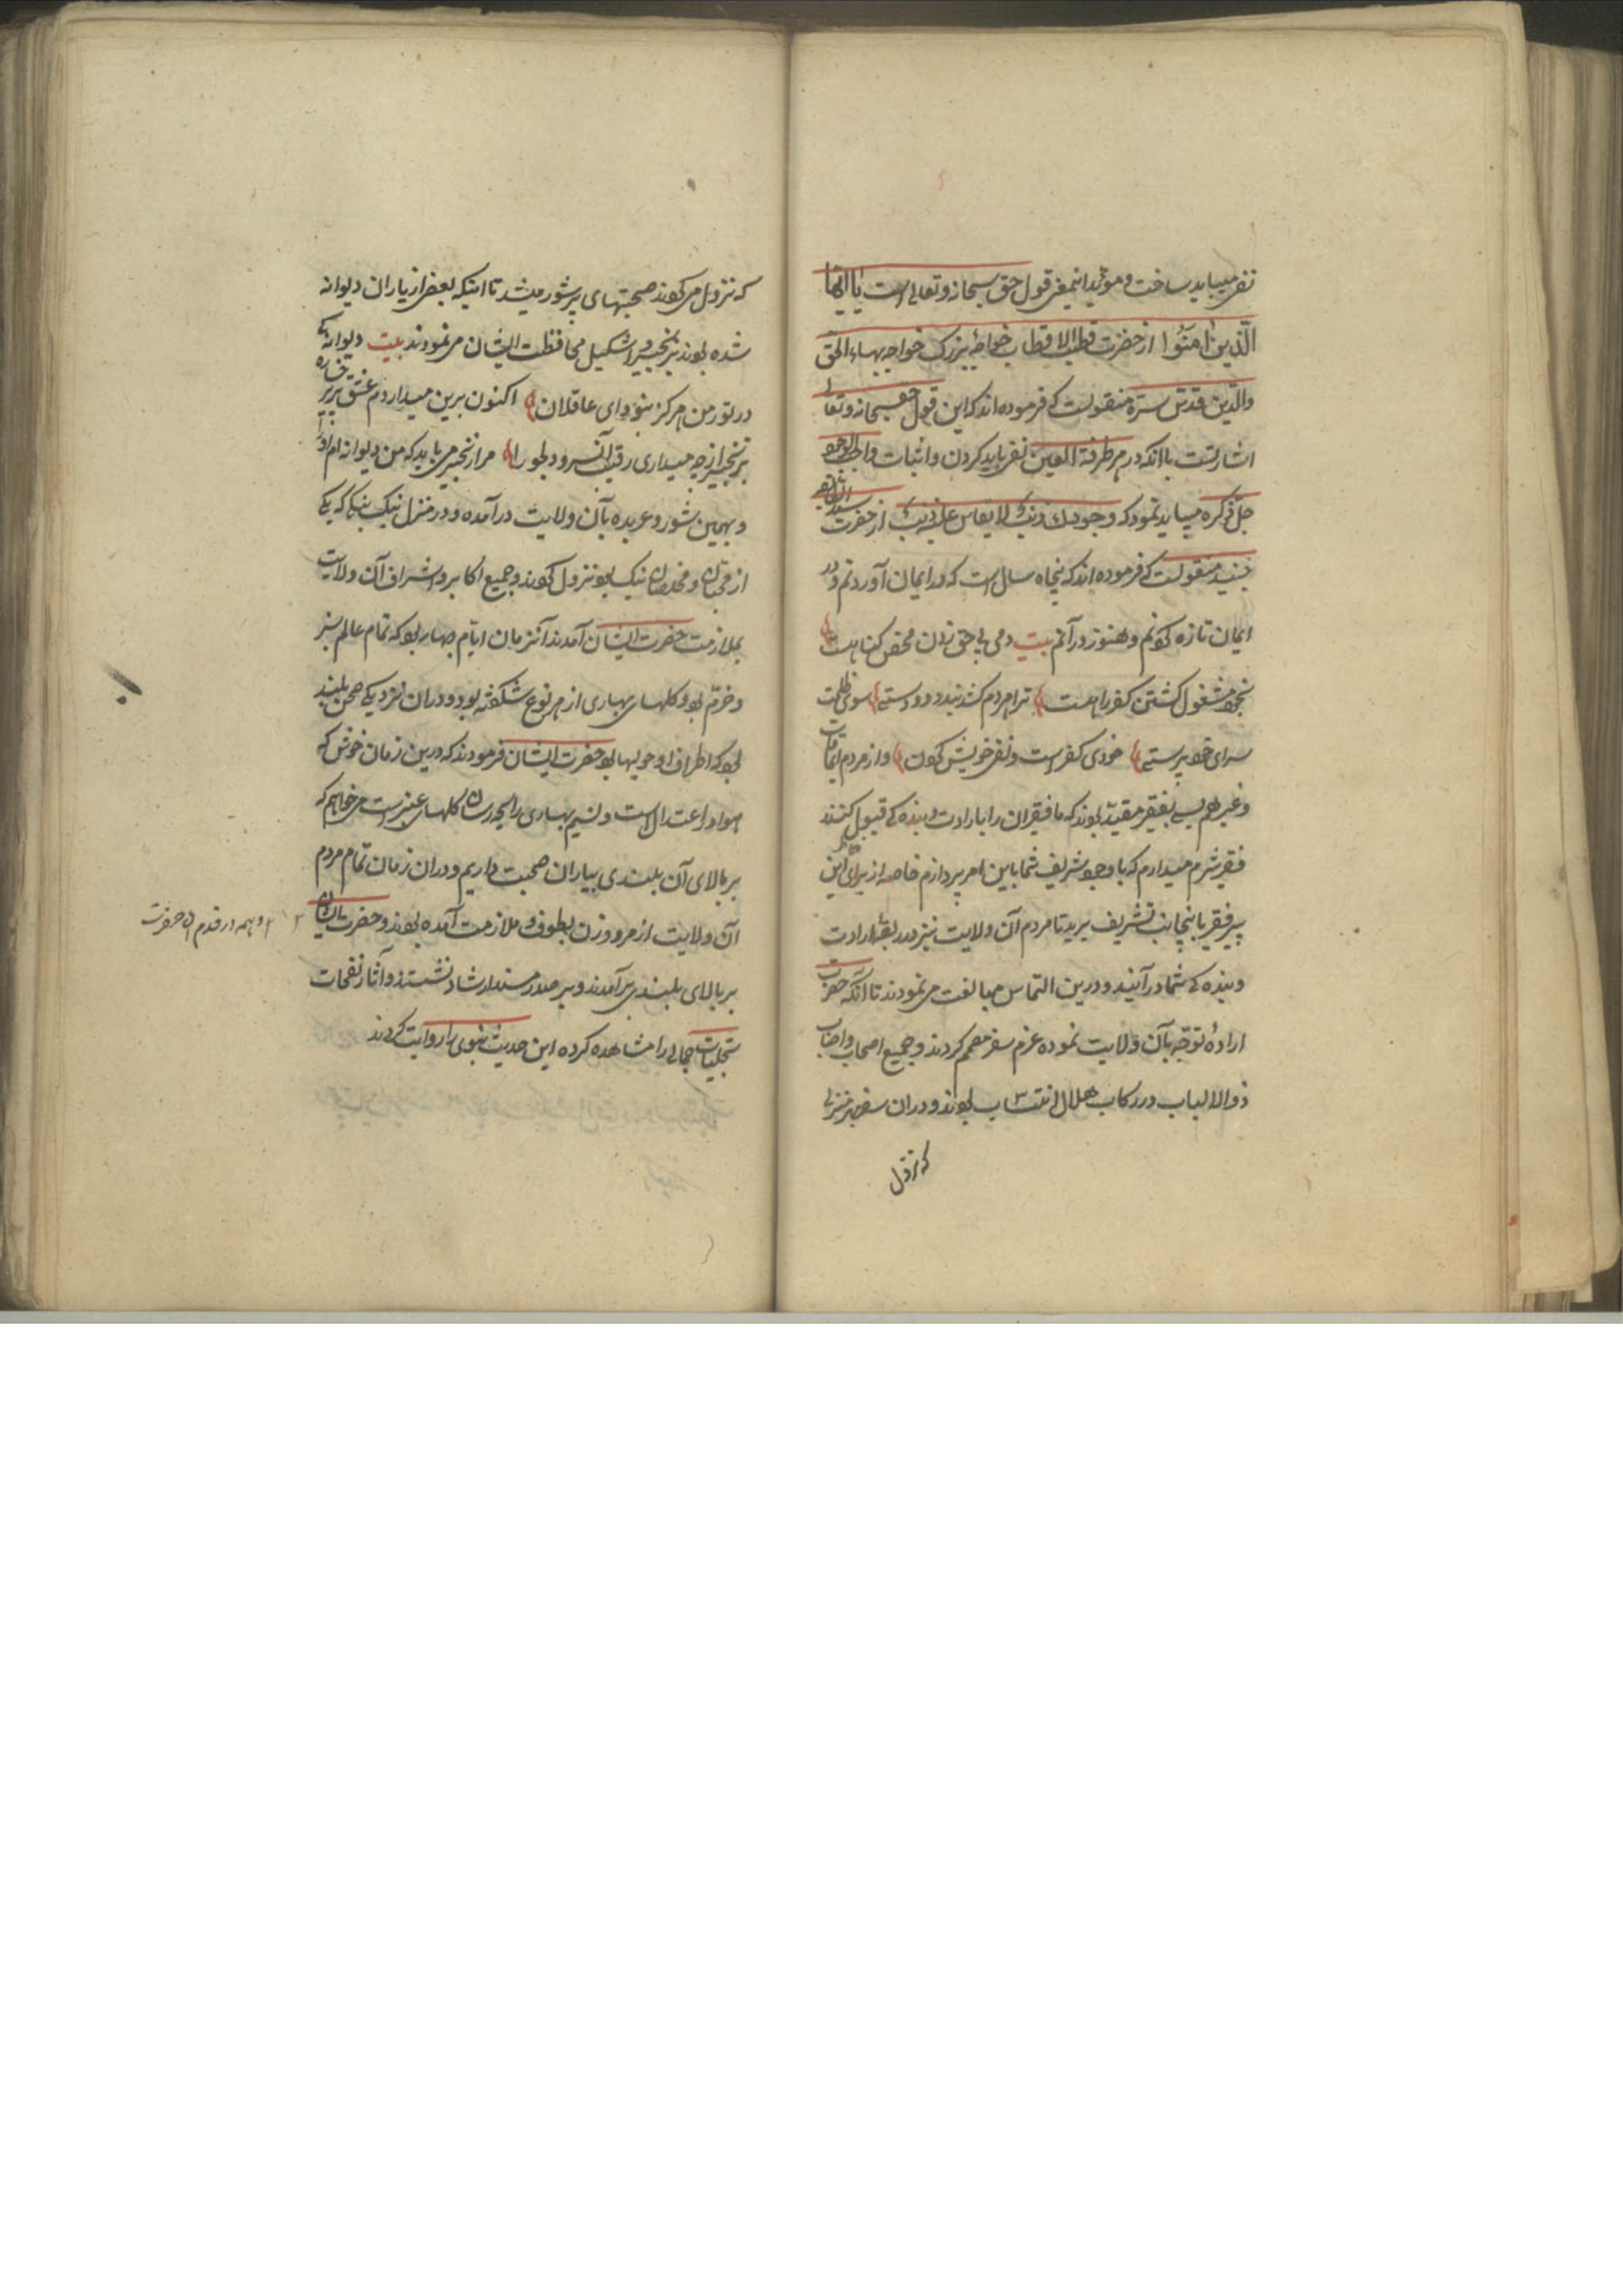 نفی میباید ساخت و مؤید اینمعنی قول حق سبحانه و تعالی است یا ایها
الّذین اٰمَنُوا از حضرت قطب الاقطاب خواجۀ بزرک خواجه بهاء الحق
والدّین قدّس سرّه منقولست که فرموده اند که این قول حق سبحانه و تعالی
اشارتست باانکه در هر طرفة العین نفی باید کردن و اثبات واجب الوجود
جلّ ذکره میباید نمود که وجودک ذنب لا یقاس علیه ذنب از حضرت سید الطایفه
جنید منقولست که فرموده اند که پنجاه سال است که در ایمان آوردنم و در
ایمان تازه کونم و هنوز در آنم بیت دمی بی حق زدن محض کناهست
بخود مشغول کشتن کفر راهست ترا هر دم کشد نبود دوستی سوی ظلمت
سرای خود پرستی خودی کفرست و نفی خویش کون و از مردم
و غیرهم بسی بفقیر مقید بودند که ما فقیران را بارادت و بنده کی قبول کنند
فقیر شرم میدارم که با وجود شریف شما باین امر پردازم خاصه از برای این
پیر فقیر باینجانب تشریف برید تا مردم آن ولایت نیز در ربقۀ ارادت
و بنده کی شما در آیند و درین التماس مبالغت می نمودند تا آنکه حضرت
ارادۀ توجّه بآن ولایت نموده عزم سفر مصمم کردند و جمیع اصحاب و احباب
ذوالالباب در رکاب هلال انتساب بودند و در ان سفر هر منزلی
که نزول
که نزول می کردند صحبتهای پرشور میشد تا اینکه بعضی از یاران دیوانه
شده بودند بزنجیر و اشکیل محافظت ایشان می نمودند بیت دیوانه کی
در تور من هرکز نبود ای عاقلان اکنون برین میدارد م عشق پری رخساره
بزنجیر از چه میداری رقیب آنسرو دلجو را مرا زنجیر می باید که من دیوانه ام او را
و بهمین شور و عربده بآن ولایت در آمده و در منزل نیک بیکا که یکی
از محبان و مخلصان نیک بود نزول کردند و جمیع اکابر و اشراف آن ولایت
بملازمت حضرت ایشان آمدند آنزمان ایام بهار بود که تمام عالم سبز
و خرّم بود و کلهای بهاری از هر نوع شکفته بود و در ان نزدیکی صحن بلند
بود که اطراف او حولیها بود حضرت ایشان فرمودند که درین زمان خوش که
هوا در اعتدال است و نسیم بهاری رایحه رسان کلهای عنبرست می خواهم که
بر بالای آن بلندی بیاران صحبت داریم و در ان زمان تمام مردم
آن ولایت از مرد و زن بطوف و ملازمت آمده بودند و حضرت ایشان
و همه در قدم ان حضرت
بر بالای بلندی بر آمدند و بر صدر مسند ارشاد نشستند و آثار نفحات
تجلیات جمالی را مشاهده کرده این حدیث نبوی را روایت کردند